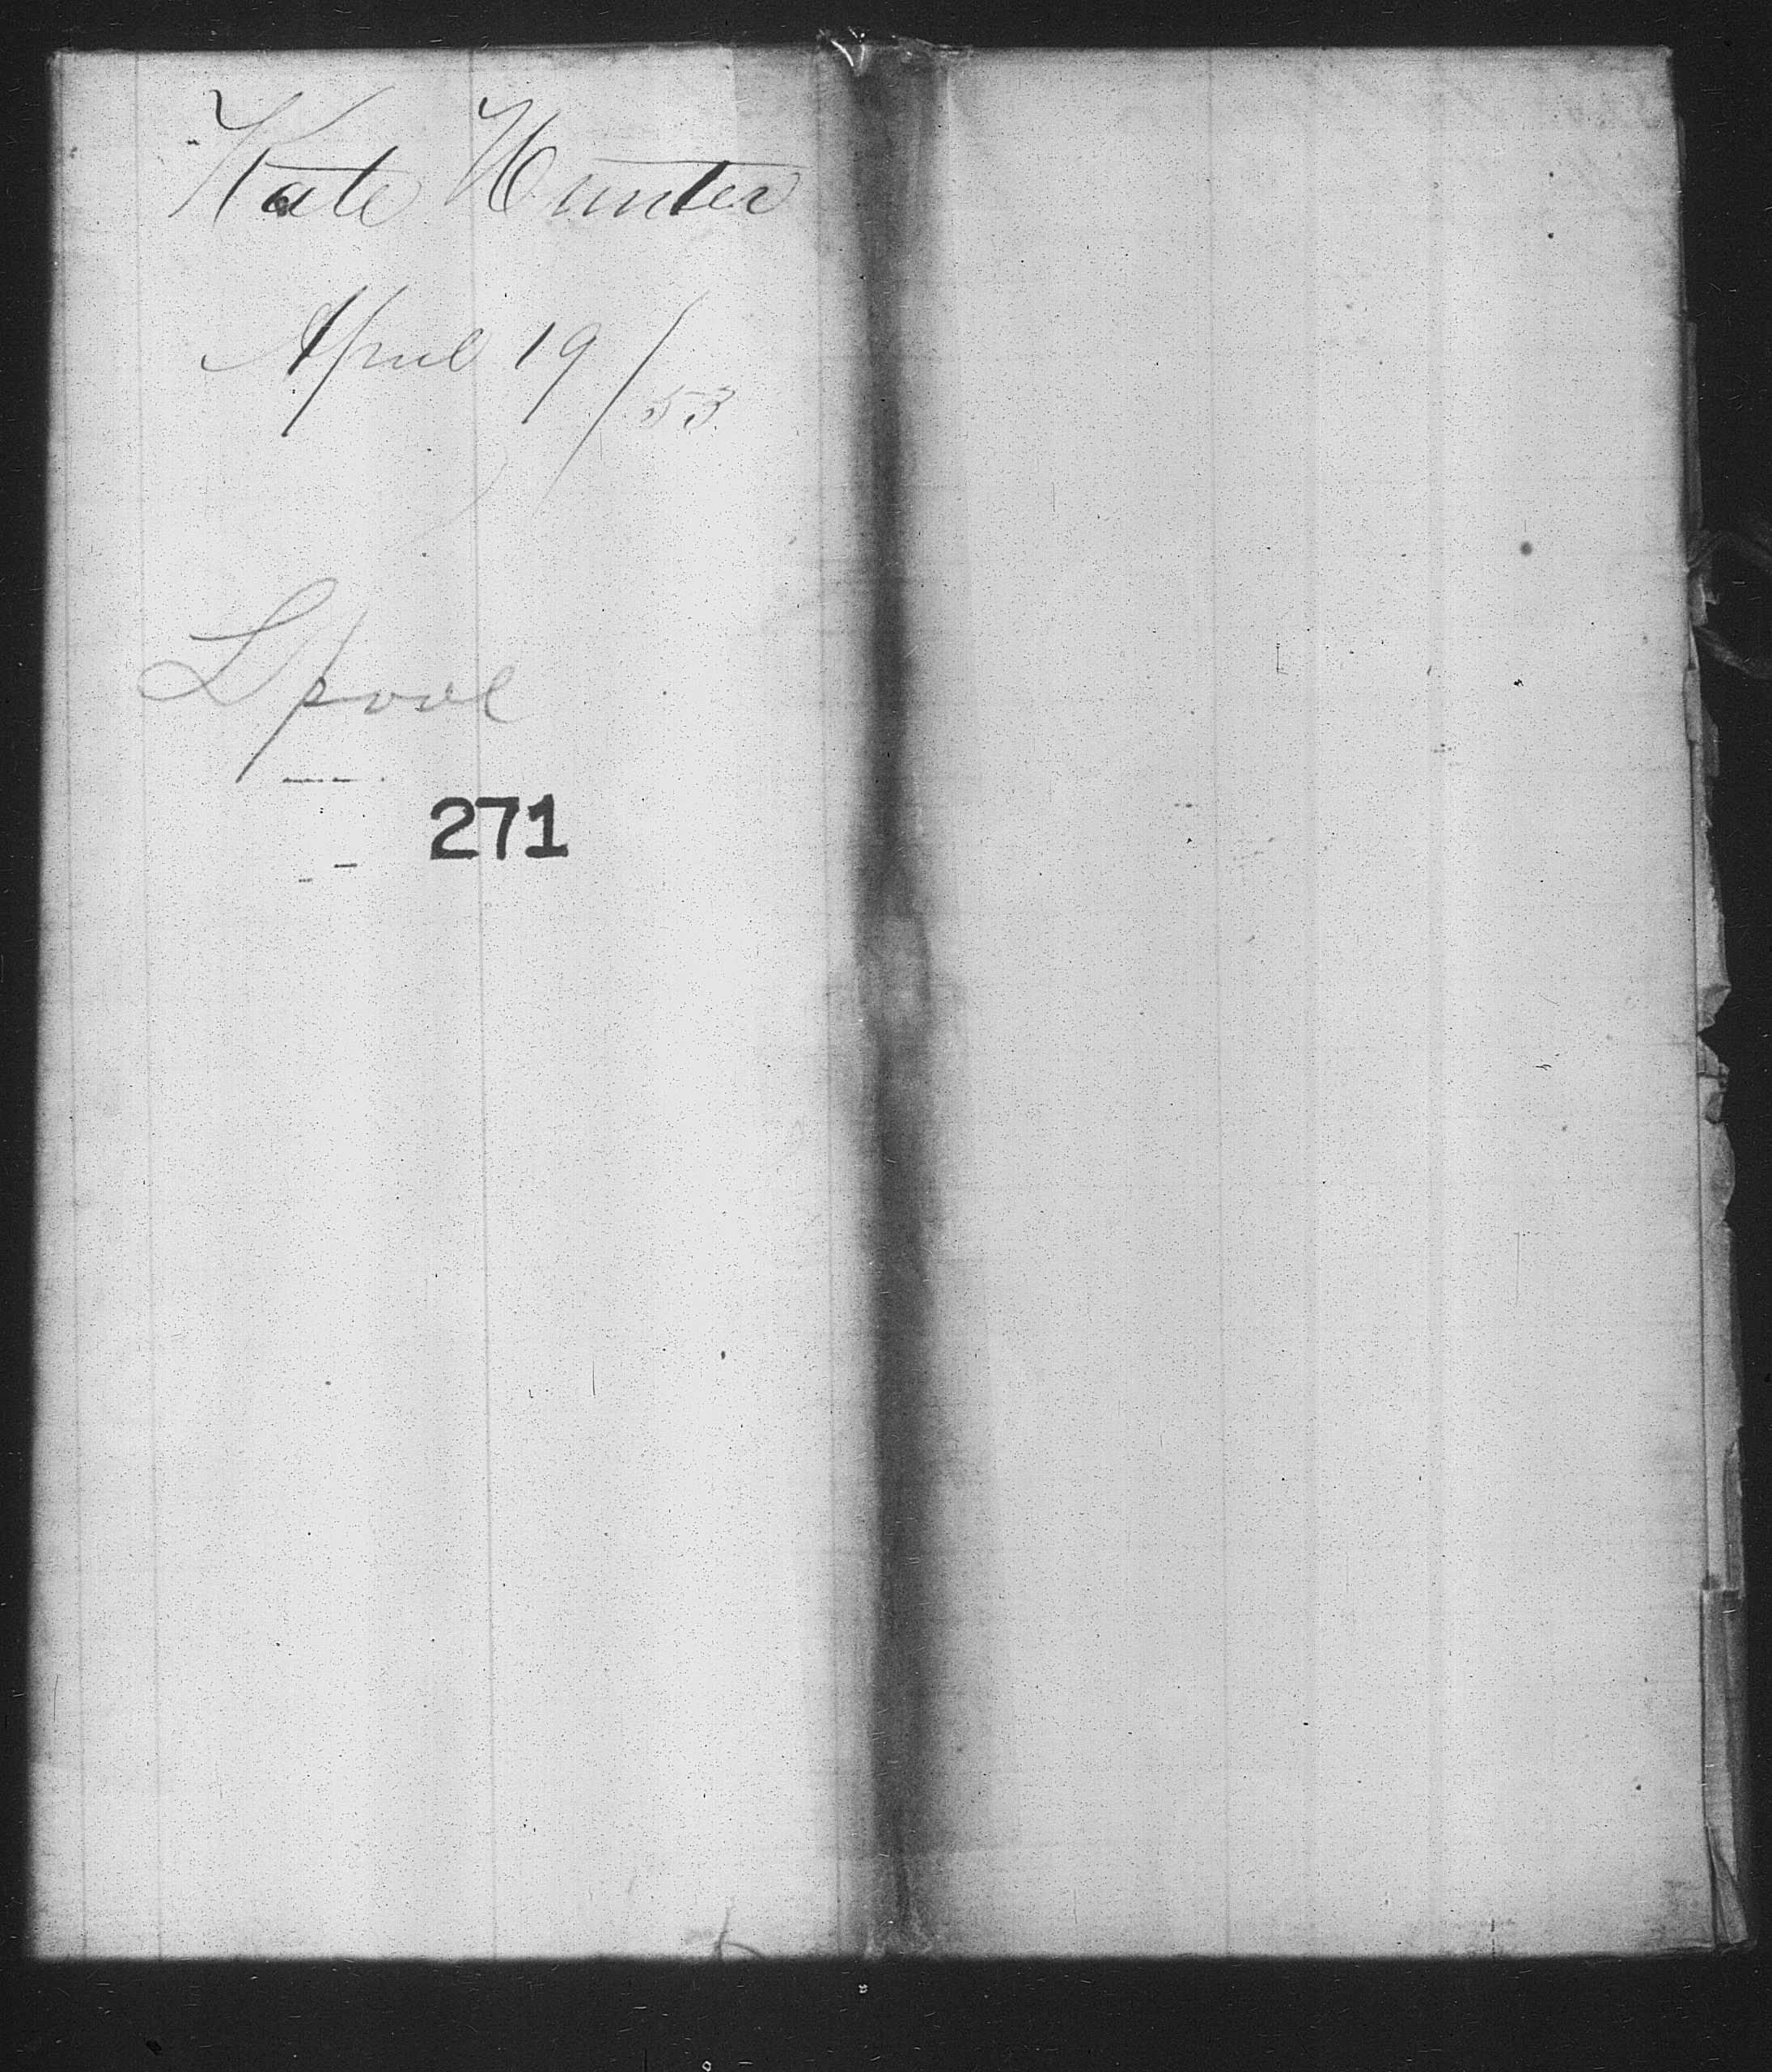 Kate Hunter
April 19/53
Lpool
271